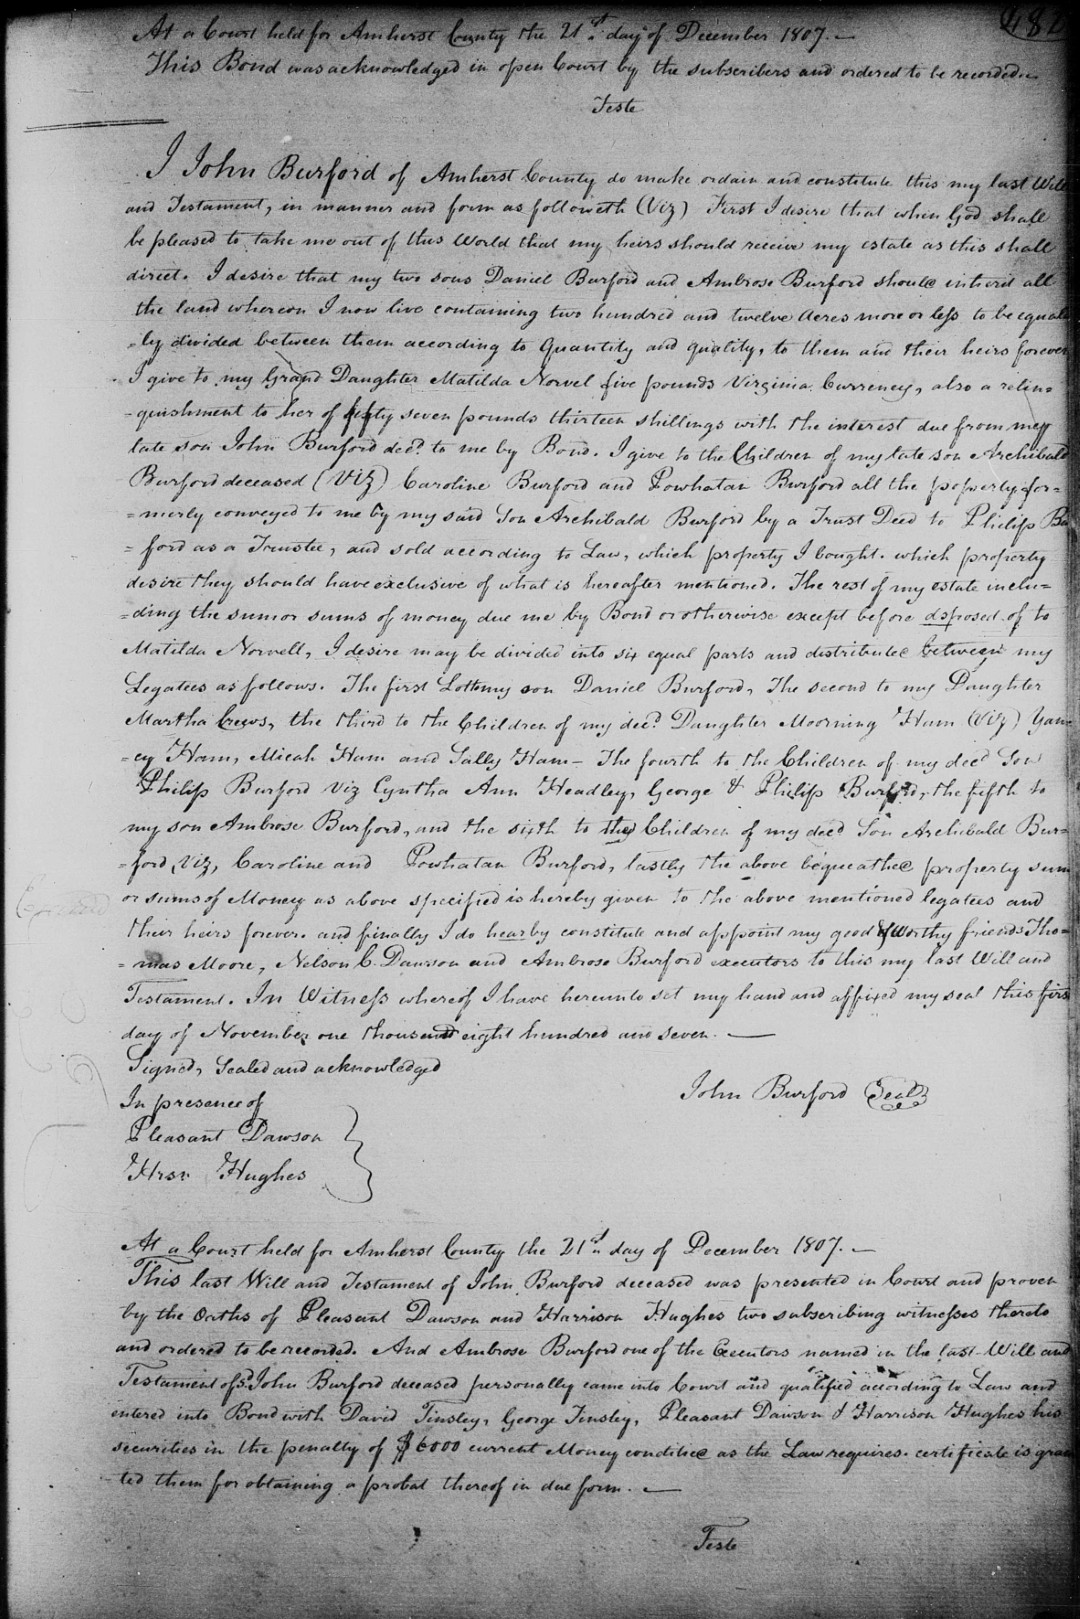 At a Court held for Amherst County the 21st day of December 1807. —
This Bond was acknowledged in open Court by the subscribers and ordered to be recorded.
Teste
I John Burford of Amherst County do make ordain and constitute this my last Will
and Testament, in manner and form as followeth (Viz) First I desire that when God shall
be pleased to take me out of this World that my heirs should receive my estate as this shall
direct. I desire that my two sons Daniel Burford and Ambrose Burford should inherid all
the land whereon I now live containing two hundred and twelve Acres more or less to be equal
=ly divided between them according to Quantity and quality, to them and their heirs forever
I give to my Grand Daughter Matilda Norvel five pounds Virginia Currency, also a relin=
=quishment to her of fifty seven pounds thirteen shillings with the interest due from my
late son John Burford decd. to me by Bond. I give to the Children of my late son Archibald
Burford deceased (Viz) Caroline Burford and Powhatan Burford all the property for=
=merly conveyed to me by my said Son Archibald Burford by a Trust Deed to Philip Bu
=ford as a Trustee, and sold according to Law, which property I bought. which property
desire they should have exclusive of what is hereafter mentioned. The rest of my estate inclu=
=ding the sum or sums of money due me by Bond or otherwise except before disposed of to
Matilda Norvell, I desire may be divided into six equal parts and distributed between my
Legatees as follows. The first Lot to my son Daniel Burford, The second to my Daughter
Martha Crews, the third to the Children of my decd. Daughter Moorning Ham (Viz) Yan=
=cy Ham, Micah Ham and Sally Ham — The fourth to the Children of my decd Son
Philip Burford Viz Cyntha Ann Headley, George & Philip Burford, the fifth to
my son Ambrose Burford, and the sixth to the Children of my decd Son Archibald Bur=
=ford, Viz, Caroline and Powhatan Burford, lastly the above bequeathed property sum
or sums of Money as above specified is hereby given to the above mentioned legatees and
their heirs forever. and finally I do hearby constitute and appoint my good & worthy friends Tho=
=mas Moore, Nelson C. Dawson and Ambrose Burford executors to this my last Will and
Testament. In Witness whereof I have hereunto set my hand and affixed my seal this first
day of November one thousand eight hundred and seven. —
Signed, Sealed and acknowledged
In presence of
John Burford Seal
Pleasant Dawson
Hrsn Hughes
At a Court held for Amherst County the 21st day of December 1807. —
This last Will and Testament of John Burford deceased was presented in Court and proven
by the Oaths of Pleasant Dawson and Harrison Hughes two subscribing witnesses thereto
and ordered to be recorded. And Ambrose Burford one of the Executors named in the last Will and
Testament of sd. John Burford deceased personally came into Court and qualified according to Law and
entered into Bond with David Tinsley, George Tinsley, Pleasant Dawson & Harrison Hughes his
securities in the penalty of $6000 current Money conditioned as the Law requires. certificate is gran
ted them for obtaining a probat thereof in due form. —
Teste